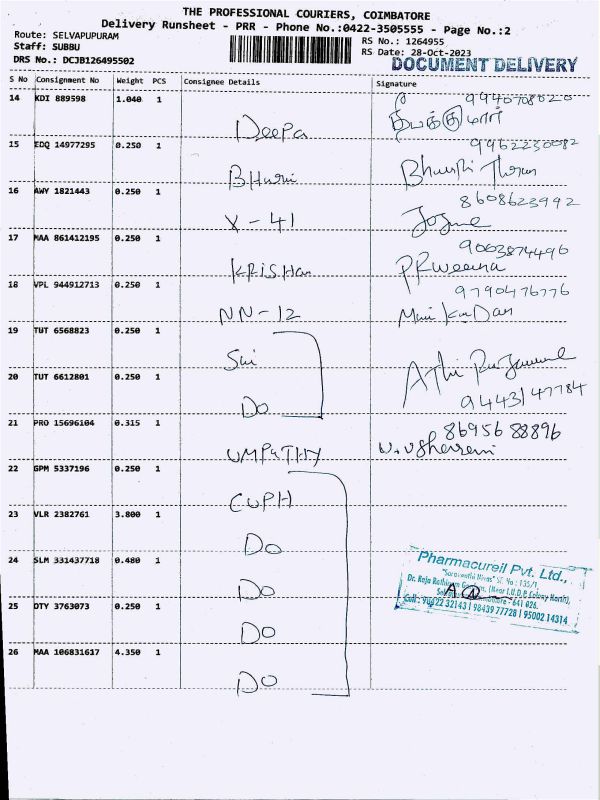 THE PROFESSIONAL COURIERS, COIMBATORE
Delivery Runsheet - PRR - Phone No.:0422-3505555 - Page No.:2
Route: SELVAPUPURAM
Staff: SUBBU
DRS No.: DCJB126495502
RS No.: 1264955
RS Date: 28-Oct-2023
DOCUMENT DELIVERY
S No Consignment No Weight PCS Consignee Details Signature
14 KDI 889598 1.040 1 Deepa
15 EDQ 14977295 0.250 1 9962230082
16 AWY 1821443 0.250 1 X-41 8608623992
17 MAA 861412195 0.250 1 KRISHan 9003874496
18 VPL 944912713 0.250 1 NN-12 9790476776
19 TUT 6568823 0.250 1 Sai
20 TUT 6612801 0.250 1 Do 9443147784
21 PRO 15696104 0.315 1 UMPATHY 8695688896
22 GPM 5337196 0.250 1 CUPH
23 VLR 2382761 3.800 1 Do
24 SLM 331437718 0.480 1 Do
25 DTY 3763073 0.250 1 Do
26 MAA 106831617 4.350 1 Do
Pharmacureil Pvt. Ltd.,
"Saravanthi Nivas" Sf. No : 135/1,
Dr. Raja Rathinam (Near I.U.D.P. Colony North),
- 641 026.
Cell : 94422 32143 | 98439 77728 | 95002 14314